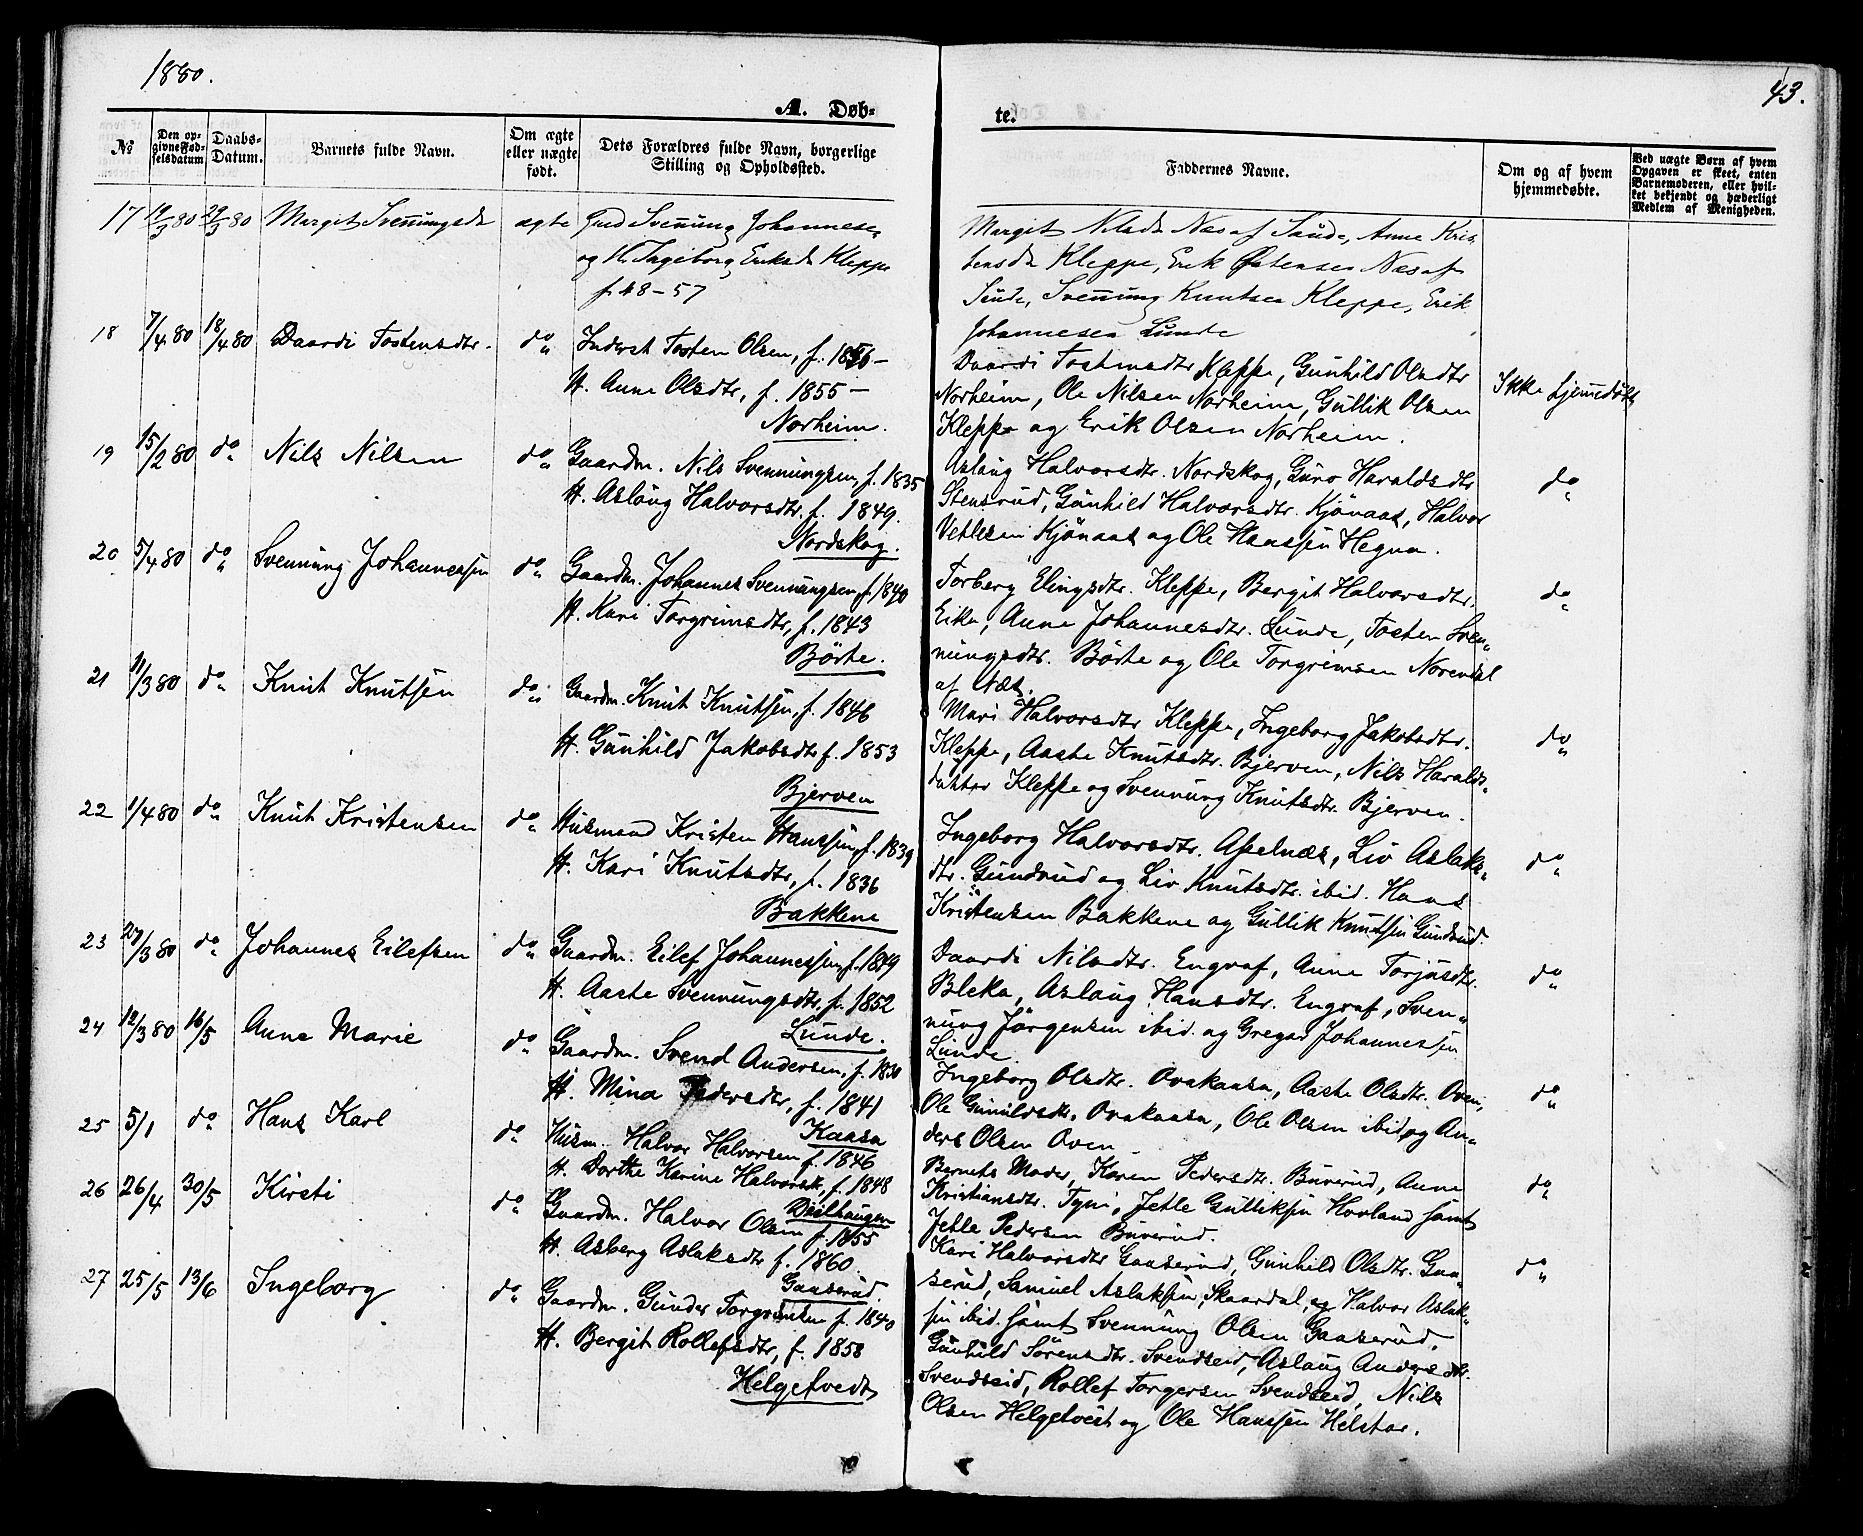 1880.
43.
A. Døb-
te.
No
Den op-
givne Fød-
selsdatum.
Daabs-
Datum.
Barnets fulde Navn.
Om ægte
eller uægte
født.
Dets Forældres fulde Navn, borgerlige
Stilling og Opholdssted.
Faddernes Navne.
Om og af hvem
hjemmedøbte.
Ved uægte Børn af hvem
Opgaven er skeet, enten
Barnemoderen, eller hvil-
ket bekjendt og hæderligt
Medlem af Menigheden.
17 19/3 80 29/3 80 Margit Svennungsdr ægte Gmd Svennung Johannesen
og H. Ingeborg Eriksdr Kleppe
f. 48 – 57
Margit Nilsdr Næs af Saude, Anne Kris-
tensdr Kleppe, Erik Østensen Næs af
Saude, Svennung Knutsen Kleppe, Erik
Johannesen Lunde
18 7/4 80 18/4 80 Daardi Tostensdtr. do Inderst Tosten Olsen, f. 1856 –
H. Anne Olsdtr, f. 1855 –
Norheim.
Daardi Tostensdtr Kleppe, Gunhild Olsdtr
Norheim, Ole Nilsen Norheim, Gullik Olsen
Kleppe og Erik Olsen Norheim.
Ikke hjemedøbt
19 15/2 80 do Nils Nilsen do Gaardm. Nils Svennungsen, f. 1835
H. Aslaug Halvorsdtr. f. 1849.
Nordskog.
Aslaug Halvorsdtr. Nordskog, Guro Haraldsdtr
Stensrud, Gunhild Halvorsdtr. Kjønaas, Halvor
Vetlesen Kjønaas og Ole Hanssen Hegna.
do
20 5/4 80 do Svennung Johannessen do Gaardm. Johannes Svennungsen, f. 1840
H. Kari Torgrimsdtr, f. 1843
Børte.
Torberg Elingsdtr. Kleppe, Bergit Halvorsdtr.
Eika, Anne Johannesdtr. Lunde, Tosten Sven-
nungsdtr. Børte og Ole Torgrimsen Norendal
af Næs.
do
21 11/3 80 do Knut Knutsen do Gaardm. Knut Knutsen, f. 1846
H. Gunhild Jakobsdtr f. 1853
Bjerven
Mari Halvorsdtr Kleppe, Ingeborg Jakobsdtr.
Kleppe, Aaste Knutsdtr. Bjerven, Nils Haralds-
datter Kleppe og Svennung Knutsdtr. Bjerven.
do
22 1/4 80 do Knut Kristensen do Husmand Kristen Hanssen, f. 1839
H. Kari Knutsdtr, f. 1836
Bakkene
Ingeborg Halvorsdtr. Apelnæs, Liv Aslaks-
dtr. Gundrud og Liv Knutsdtr. ibid. Hans
Kristensen Bakkene og Gullik Knutsen Gundrud.
do
23 27/3 80 do Johannes Eilefsen do Gaardm. Eilef Johannessen, f. 1849
H. Aaste Svennungsdtr, f. 1852
Lunde.
Daardi Nilsdtr. Engraf, Anne Torjusdtr.
Bleka, Aslaug Hansdtr. Engraf, Sven-
nung Jørgensen ibid. og Gregar Johannessen
Lunde.
do
24 12/3 80 16/5 Anne Marie do Gaardm. Svend Andersen, f. 1830
H. Mina Pedersdtr, f. 1841
Kaasa
Ingeborg Olsdtr. Ovakaasa, Aaste Olsdtr. Oven,
Ole Gunuldsdtr. Ovakaasa, Ole Olsen ibid. og An-
ders Olsen Oven
do
25 5/1 do Hans Karl do Husm. Halvor Halvorsen f. 1846
H. Dorthe Karine Halvorsdr, f. 1848
Barnets Moder, Karen Pedersdtr. Buverud, Anne
Kristiansdtr. Tyni, Jetle Gulliksen Hovland samt
Jetle Pedersen Buverud.
do
26 26/4 30/5 Kirsti do Gaardm. Halvor Olsen f. 1855
H. Asberg Aslaksdtr f. 1860.
Gaaserud.
Kari Halvorsdtr Gaaserud, Gunhild Olsdtr. Gaa-
serud, Samuel Aslaksen, Skaardal, og Halvor Aslak-
sen ibid. samt Svennung Olsen Gaaserud.
do
27 25/5 13/6 Ingeborg do Gaardm. Gunder Torgrimsen f. 1840
H. Bergit Rollefsdtr, f. 1858
Helgetvedt
Gunhild Sørensdtr. Svendseid, Aslaug Andersdtr.
Svendseid, Rollef Torgersen Svendseid, Nils
Olsen Helgetvedt og Ole Hanssen Helstar.